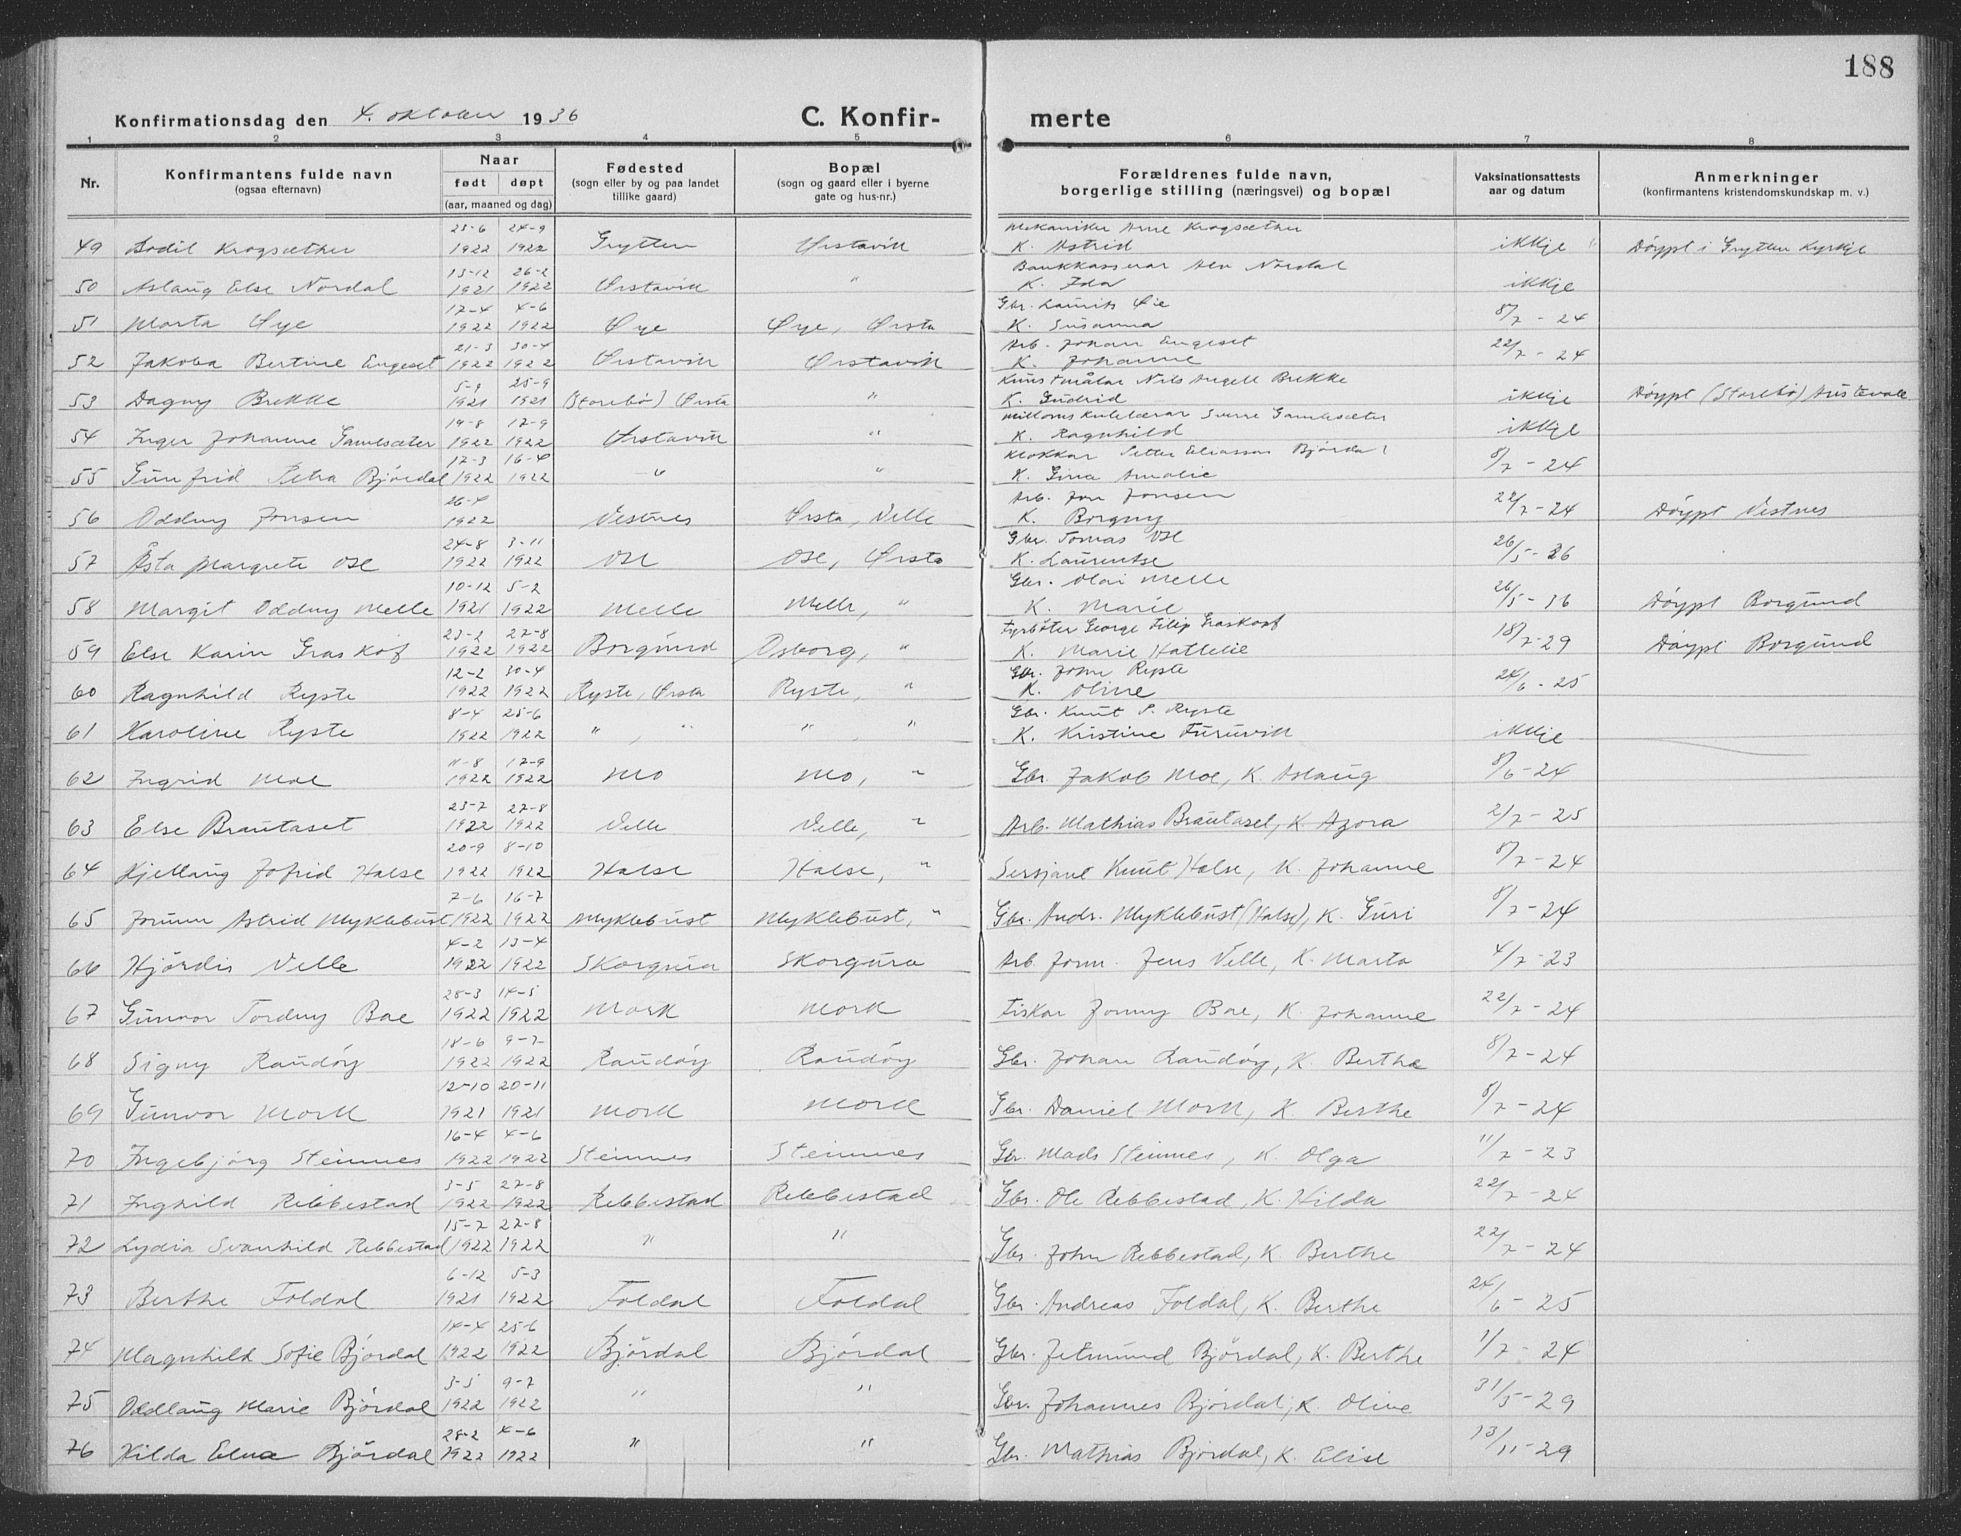 188
Konfirmationsdag den 4. oktober 1936 C. Konfirmerte
1 2 3 4 5 6 7 8
Nr. Konfirmantens fulde navn (ogsaa efternavn) Naar født døpt (aar, maaned og dag) Fødested (sogn eller by og paa landet tillike gaard) Bopæl (sogn og gaard eller i byerne gate og hus-nr.) Forældrenes fulde navn, borgerlige stilling (næringsvei) og bopæl Vaksinationsattests aar og datum Anmerkninger (konfirmantens kristendomskundskap m. v.)
49 Bodil Krogsæther 25-6 1922 24-9 1922 Grytten Ørstavik Mekanikar Arne Krogsæther K. Astrid ikkje " Døypt i Grytten kyrkje
50 Aslaug Else Nordal 13-12 1921 26-2 1922 Ørstavik " Bankkasserar Nordal K. Ida ikkje
51 Marta Øye 17-4 1922 4-6 1922 Øye Øye, Ørsta Gbr. Laurits Øie K. Susanna 8/7-24
52 Jakoba Bertine Engeset 21-3 1922 30-4 1922 Ørstavik Ørstavik Arb. Johan Engeset K. Johanne 22/7-24
53 Dagny Brekke 5-9 1921 25-9 1921 (Storebø) Ørsta " Kunstmålar Nils Angell Brekke K. Gudrid ikkje Døypt (Storebø) Austevoll
54 Inger Johanne Gamlsæter 19-8 1922 17-9 1922 Ørstavik " Millomskulelærar Sverre Gamlsæter K. Ragnhild ikkje
55 Gunfrid Petra Bjørdal 17-3 1922 16-4 1922 -"- " Klokkar Petter Eliassen Bjørdal K. Gina Amalie 8/7-24
56 Oddny Jonsen 26-4 1922 Vestnes Ørsta, Velle Arb. Jon Jonsen K. Borgny 22/7-24 Døypt Vestnes
57 Åsta Margrete Ose 24-8 1922 3-11 1922 Ose Ose, Ørsta Gbr. Tomas Ose K. Laurentse 26/5-36
58 Margit Oddny Melle 10-12 1921 5-2 1922 Melle Melle, " Gbr. Olai Melle K. Marie 26/5-36 Døypt Borgund
59 Else Karin Graskof 23-2 1922 27-8 1922 Borgund Osborg, " Fyrbøter George Filip Graskopf K. Marie Hattelie 18/7-29 Døypt Borgund
60 Ragnhild Ryste 12-2 1922 30-4 1922 Ryste, Ørsta Ryste, " Gbr. John Ryste K. Oline 24/6-25
61 Karoline Ryste 8-4 1922 25-6 1922 ", " " " Gbr. Knut P. Ryste K. Kristine Furuvik ikkje
62 Ingrid Moe 11-8 1922 17-9 1922 Mo Mo, " Gbr. Jakob Moe, K. Aslaug 8/6-24
63 Else Brautaset 23-7 1922 27-8 1922 Velle Velle, " Arb. Mathias Brautaset, K. Azora 2/7-25
64 Kjellaug Jofrid Halse 20-9 1922 8-10 1922 Halse Halse, " Sersjant Knut Halse, K. Johanne 8/7-24
65 Jorunn Astrid Myklebust 7-6 1922 16-7 1922 Myklebust Myklebust, " Gbr. Andr. Myklebust (Halse), K. Guri 8/7-24
66 Hjørdis Velle 4-2 1922 13-4 1922 Skorgura Skorgura Arb. form. Jens Velle, K. Marta 4/7-23
67 Gunvor Tordny Bae 28-3 1922 14-5 1922 Mork Mork Fiskar Jonny Bae, K. Johanne 22/7-24
68 Signy Raudøy 18-6 1922 9-7 1922 Raudøy Raudøy Gbr. Johan Raudøy, K. Berthe 8/7-24
69 Gunvor Mork 12-10 1921 20-11 1921 Mork Mork Gbr. Daniel Mork, K. Berthe 8/7-24
70 Ingebjørg Steinnes 16-4 1922 4-6 1922 Steinnes Steinnes Gbr. Mads Steinnes, K. Olga 11/7-23
71 Inghild Rebbestad 3-5 1922 27-8 1922 Rebbestad Rebbestad Gbr. Ole Rebbestad, K. Hilda 22/7-24
72 Lydia Svanhild Rebbestad 15-7 1922 27-8 1922 " " Gbr. John Rebbestad, K. Berthe 22/7-24
73 Berthe Foldal 6-12 1921 5-3 1922 Foldal Foldal Gbr. Andreas Foldal, K. Berthe 24/6-25
74 Magnhild Sofie Bjørdal 14-4 1922 25-6 1922 Bjørdal Bjørdal Gbr. Jetmund Bjørdal, K. Berthe 1/7-24
75 Oddlaug Marie Bjørdal 3-5 1922 9-7 1922 " " Gbr. Johannes Bjørdal, K. Oline 31/5-29
76 Hilda Elna Bjørdal 28-2 1922 4-6 1922 " " Gbr. Mathias Bjørdal, K. Elise 13/11-29